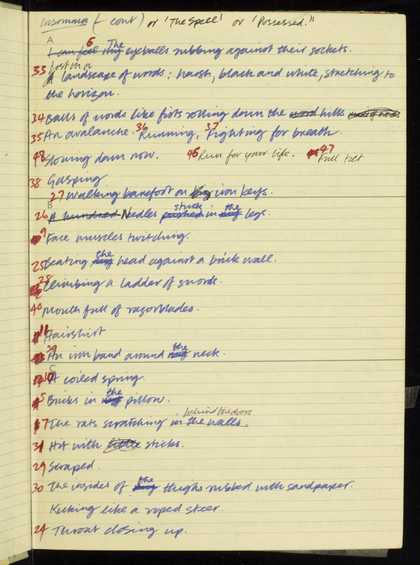 Insomnia ( cont) or 'The Spell' or 'Possessed."
A 6 The
I can feel my eyeballs rubbing against their sockets.
lost in a
33 A landscape of words: harsh, black and white, stretching to
the horizon.
34 Balls of words like fists rolling down the word hills
35 An avalanche. 36 Running, 37 Fighting for breath.
48 Slowing down now. 46 Run for your life. 47 Full tilt
38 Gasping
27 Walking barefoot on iron keys.
B stuck the
26 A hundred Needles pushed in my legs.
9 Face muscles twitching.
the
25 Beating my head against a brick wall.
28 Climbing a ladder of swords.
40 Mouth full of razorblades.
11 Hairshirt
the
An iron band around my neck.
10 A coiled spring.
the
5 Bricks in my pillow.
behind the door
17 The rats scratching in the walls.
31 Hit with little sticks.
29 Scraped.
the
30 The insides of my thighs rubbed with sandpaper.
Kicking like a roped steer.
24 Throat closing up.